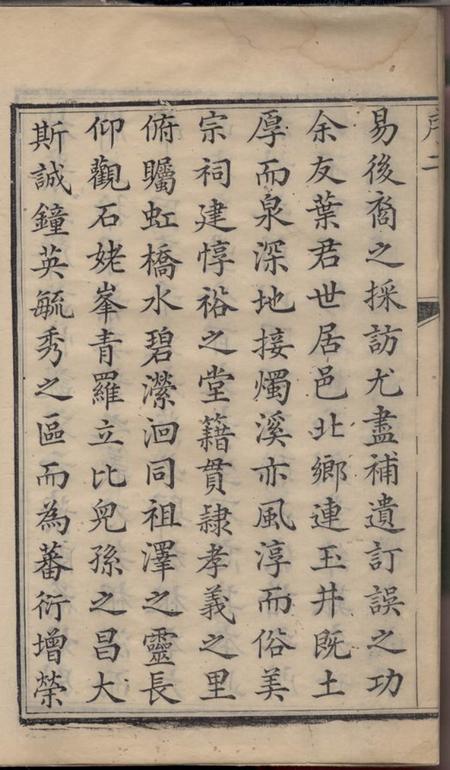 易後裔之採訪尤盡補遺訂誤之功
余友葉君世居邑北鄉連玉井既土
厚而泉深地接燭溪亦風淳而俗美
宗祠建惇裕之堂籍貫隷孝義之里
俯矚虹橋水碧瀠洄同祖澤之靈長
仰觀石姥峯青羅立比兒孫之昌大
斯誠鐘英毓秀之區而為蕃衍增榮